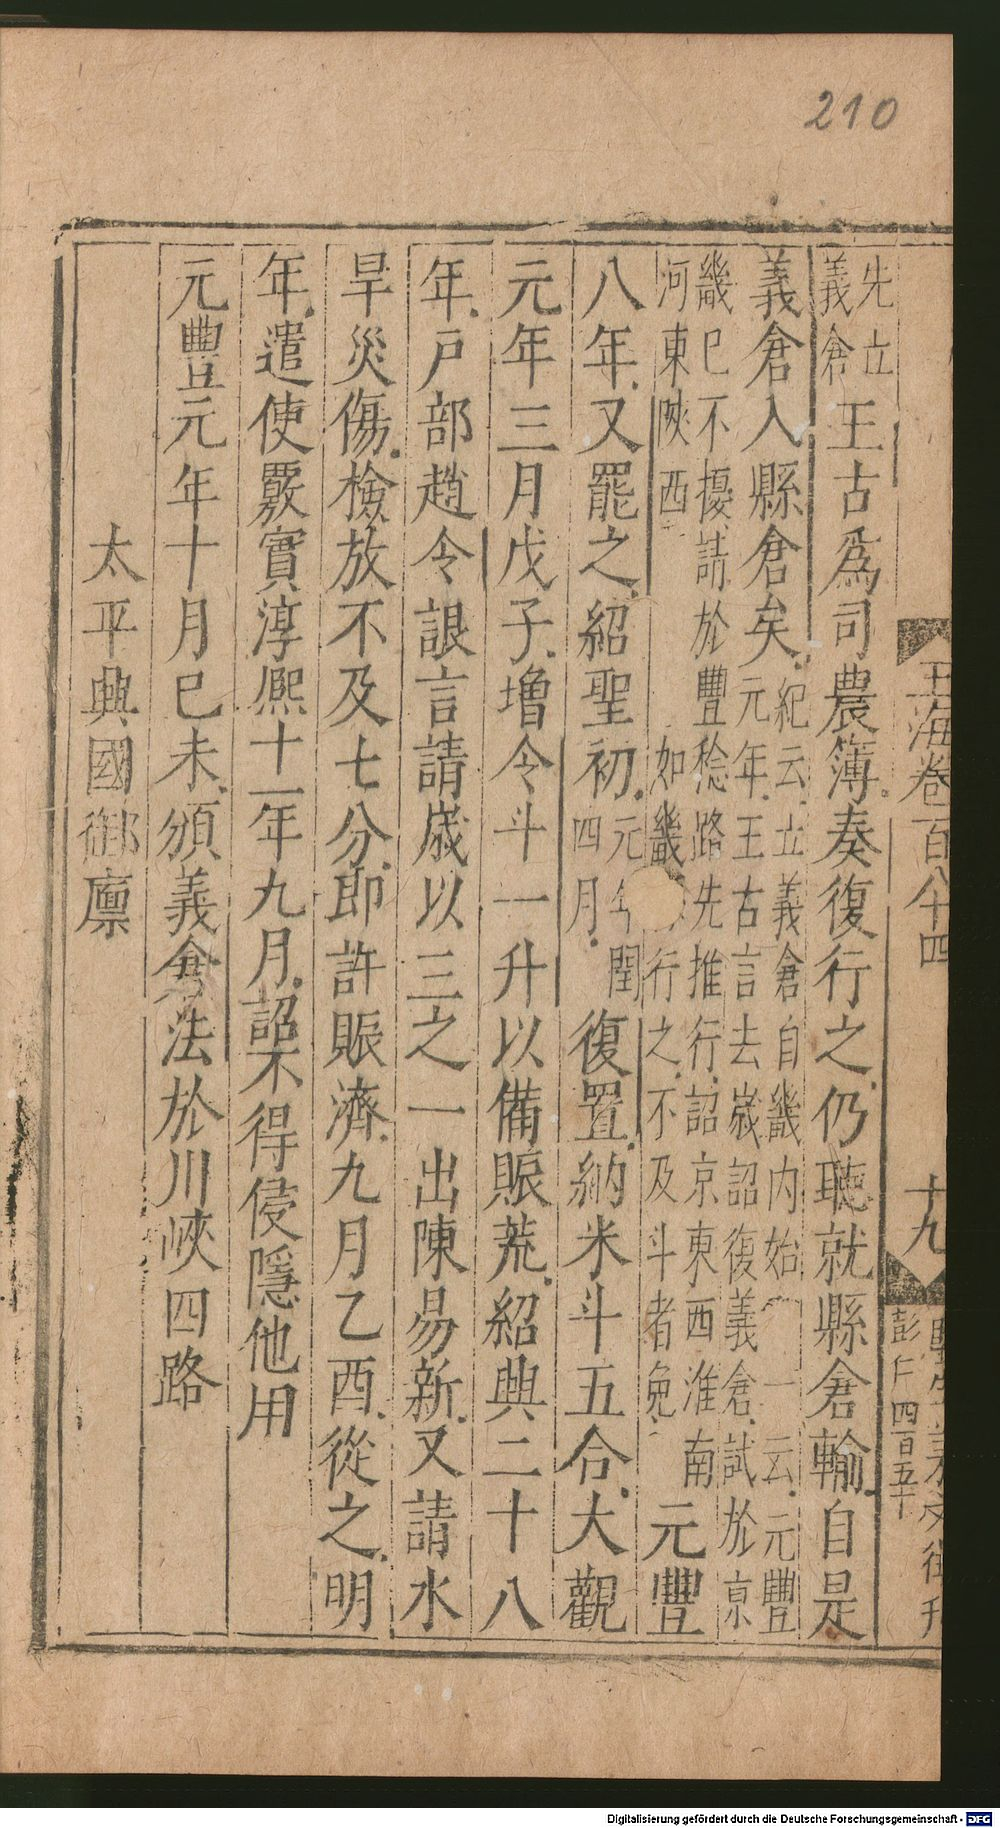 210
玉海卷一百八十四
十九
彭仁四百五十
先立
義倉
王古爲司農簿奏復行之仍聽就縣倉輸自是
義倉入縣倉矣
紀云立義倉自畿内始 一云元豐
元年王古言去歲詔復義倉試於京
畿已不擾請於豐稔路先推行詔京東西淮南
河東陜西 如畿 行之不及斗者免
元豐
八年又罷之紹聖初
元年閏
四月
復置納米斗五合大觀
元年三月戊子增令斗一升以備賑荒紹興二十八
年戸部趙令詪言請歲以三之一出陳易新又請水
旱災傷檢放不及七分即許賑濟九月乙酉從之明
年遣使覈實淳熙十一年九月詔不得侵隱他用
元豐元年十月已未頒義倉法於川峽四路
太平興國御廪
Digitalisierung gefördert durch die Deutsche Forschungsgemeinschaft - DFG